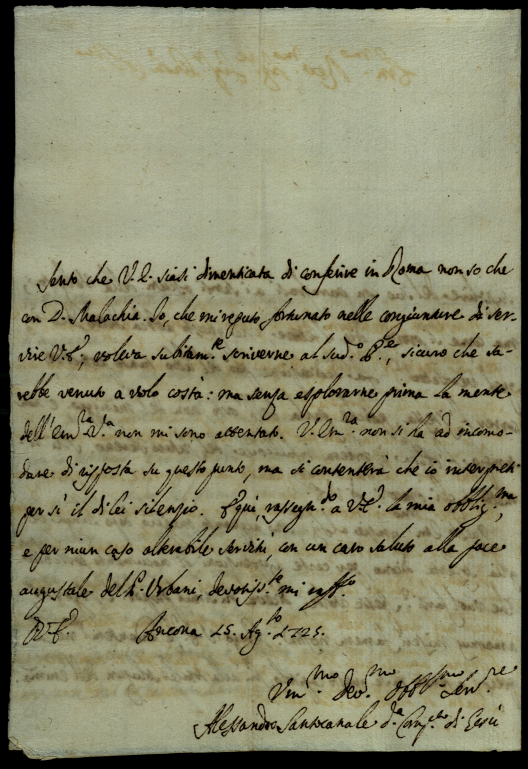 Sento che V.E. siasi dimenticata di conferire in Roma non so che
con D. Malachia. Io, che mi reputo fortunato nelle congiunture di ser-
vire V.E., voleva subitam.te scriverne al sud.o P.re, sicuro che sa-
rebbe venuto a volo costà: ma senza esplorarne prima la mente
dell'Em.za V.a non mi sono attentato. V. Em.za non si ha ad incomo-
dare di risposta su questo punto, ma si contenterà che io interpreti
per sì il di lei silenzio. E quì, rassegn.do a V.E. la mia obblig.ma
e per niun caso alterabile servitù, con un caro saluto alla face
augustale del P. Urbani, devotiss.te mi raff.o
D.V.E. Ancona 15. Ag.to 1725.
Um.mo Dev.mo Obbl.mo Ser.re
Alessandro Santocanale d.a Comp.a di Gesù